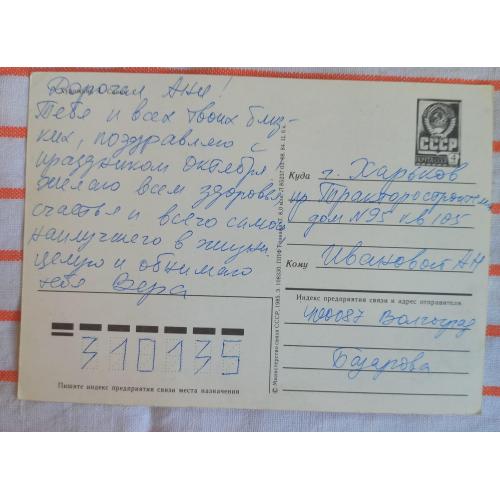 Дорогая Аня!
Тебя и всех твоих близ-
ких, поздравляю с
праздником октября!
Желаю всем здоровья,
счастья и всего самого
наилучшего в жизни,
целую и обнимаю
тебя Вера
310135
Пишите индекс предприятия связи места назначения
© Министерство связи СССР, 1983.
СССР
4
Куда
г. Харьков
пр Тракторостроителей
дом N95 кв 105
Кому
Ивановой АН
Индекс предприятия связи и адрес отправителя
400087 Волгоград
Базарова